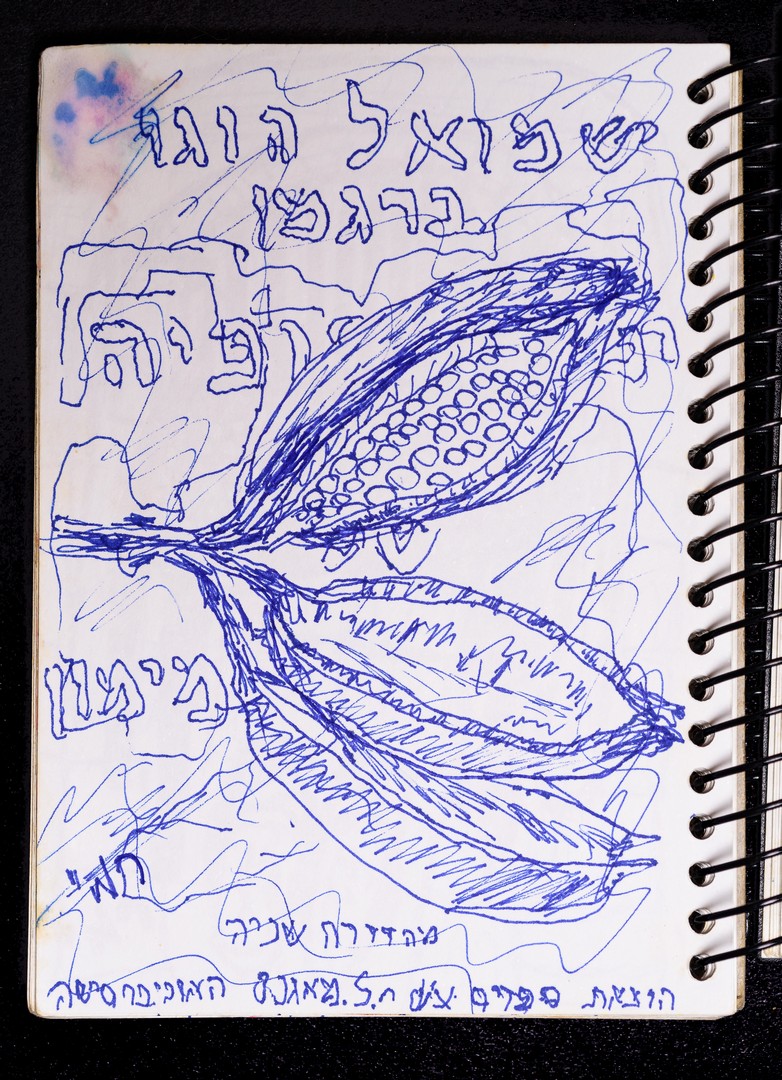 שמואל הוגו
ברגמן
מימון
חמי
מהדורה שניה
הוצאת ספרים ע״ש י.ל. מאגנס האוניברסיטה